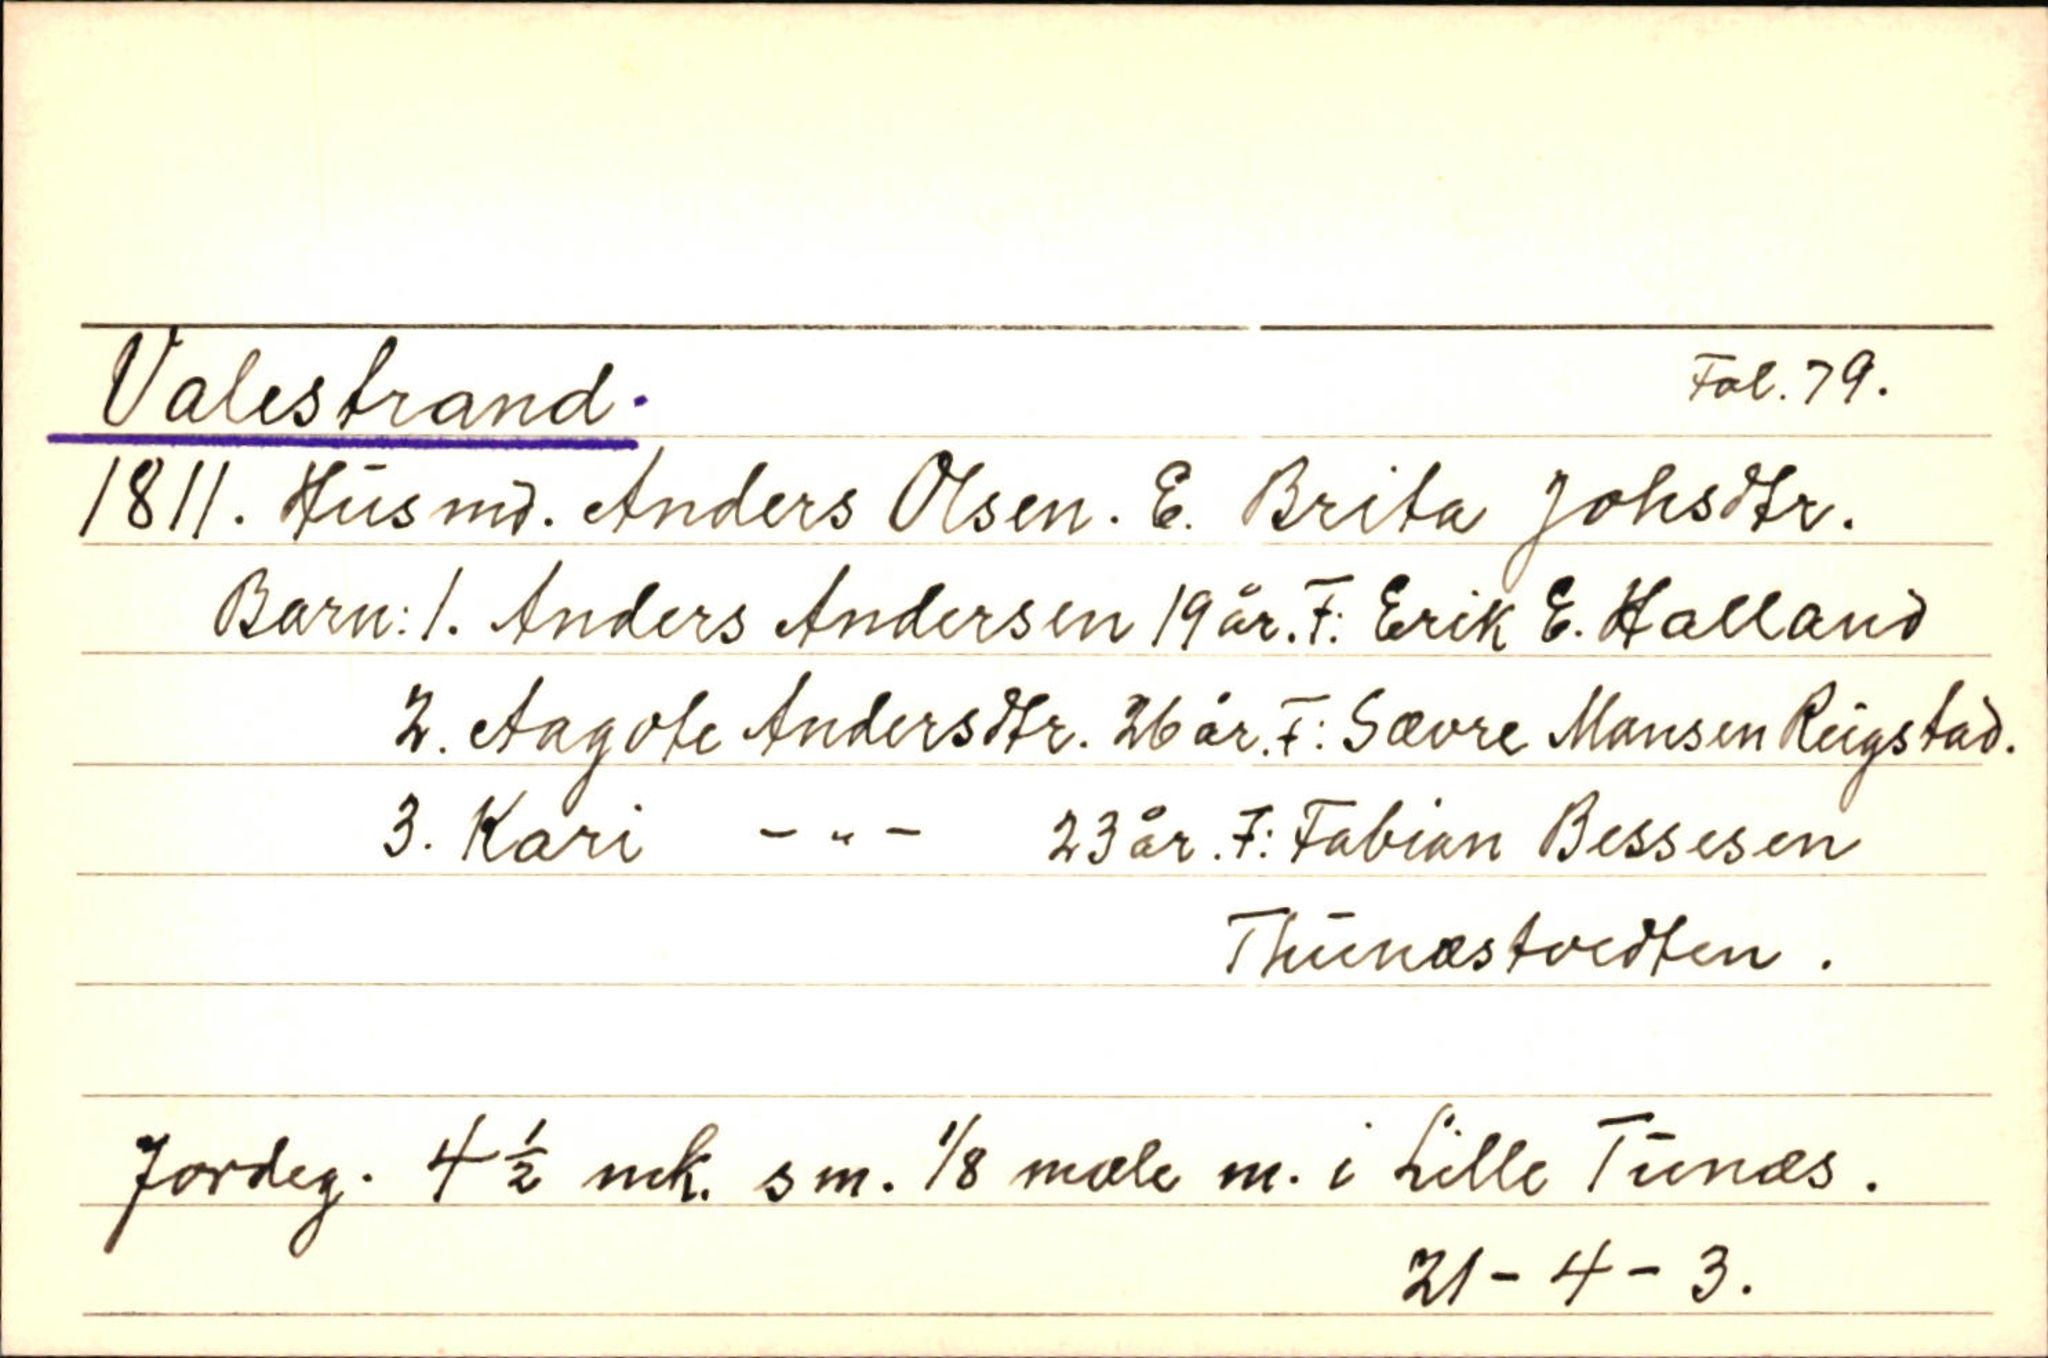 Valestrand. Fol. 79.
1811. Husmd. Anders Olsen. E. Brita Johsdtr.
Barn: 1. Anders Andersen 19 år. F: Erik E. Halland
2. Aagote Andersdtr. 26 år. F: Sævre Monsen Rugstad.
3. Kari - " - 23 år. F: Fabian Bessesen
Thunæstvedten.
Jordeg. 4 1/2 mk. sm. 1/8 mæle m. i Lille Tunæs.
21 - 4 - 3.